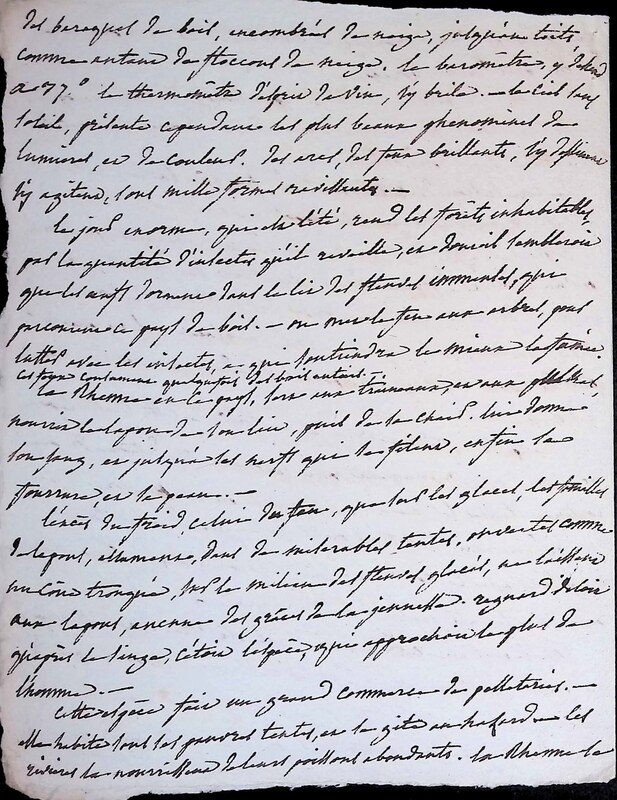 des baraques de bois, encombrés de neige, jusqu'aux toits
comme autant de floccons de neige. le baromètre, y descend
a 77.° le thermomètre d'esprit de vin, s'y brise. — le ciel sans
soleil, présente cependant les plus beaux phenomenes de
lumieres, et de couleurs. des arcs, des feux brillants, s'y dessinent
s'y agitent, sous mille formes
le jour enorme, qui est l'été, rend les forêts inhabitables,
par la quantité d'insectes qu'il reveille, et
que les dorment dans le lit des fleuves immenses, qui
ce pays de bois. — on met le feu aux arbres, pour
lutter avec les insectes, a qui soutiendra le mieux la fumée.
ces feux consument quelquefois des bois entiers. —
la Rhenne en ce pays, sert aux traineaux, et aux
nourrit le lapon de son lait, puis de sa chair. lui donne
son sang, et jusqu'a ses nerfs qui se filent, enfin sa
fourrure, et sa peau. —
l'excès du froid, celui du feu, que sur les glaces, les familles
de lapons, allument, dans de miserables tentes, ouvertes comme
un cône tronqué, sur le milieu des fleuves glacés, ne laissent
aux lapons, aucune des grâces de la jeunesse. regnard disoit
qu'après le singe, c'étoit l'espèce, qui approchoit le plus de
l'homme. —
cette espèce fait un grand commerce de pelleteries. —
elle habite sous ses pauvres tentes, et la gite au hasard — les
rivieres la nourrissent de leurs poissons abondants. la Rhenne la